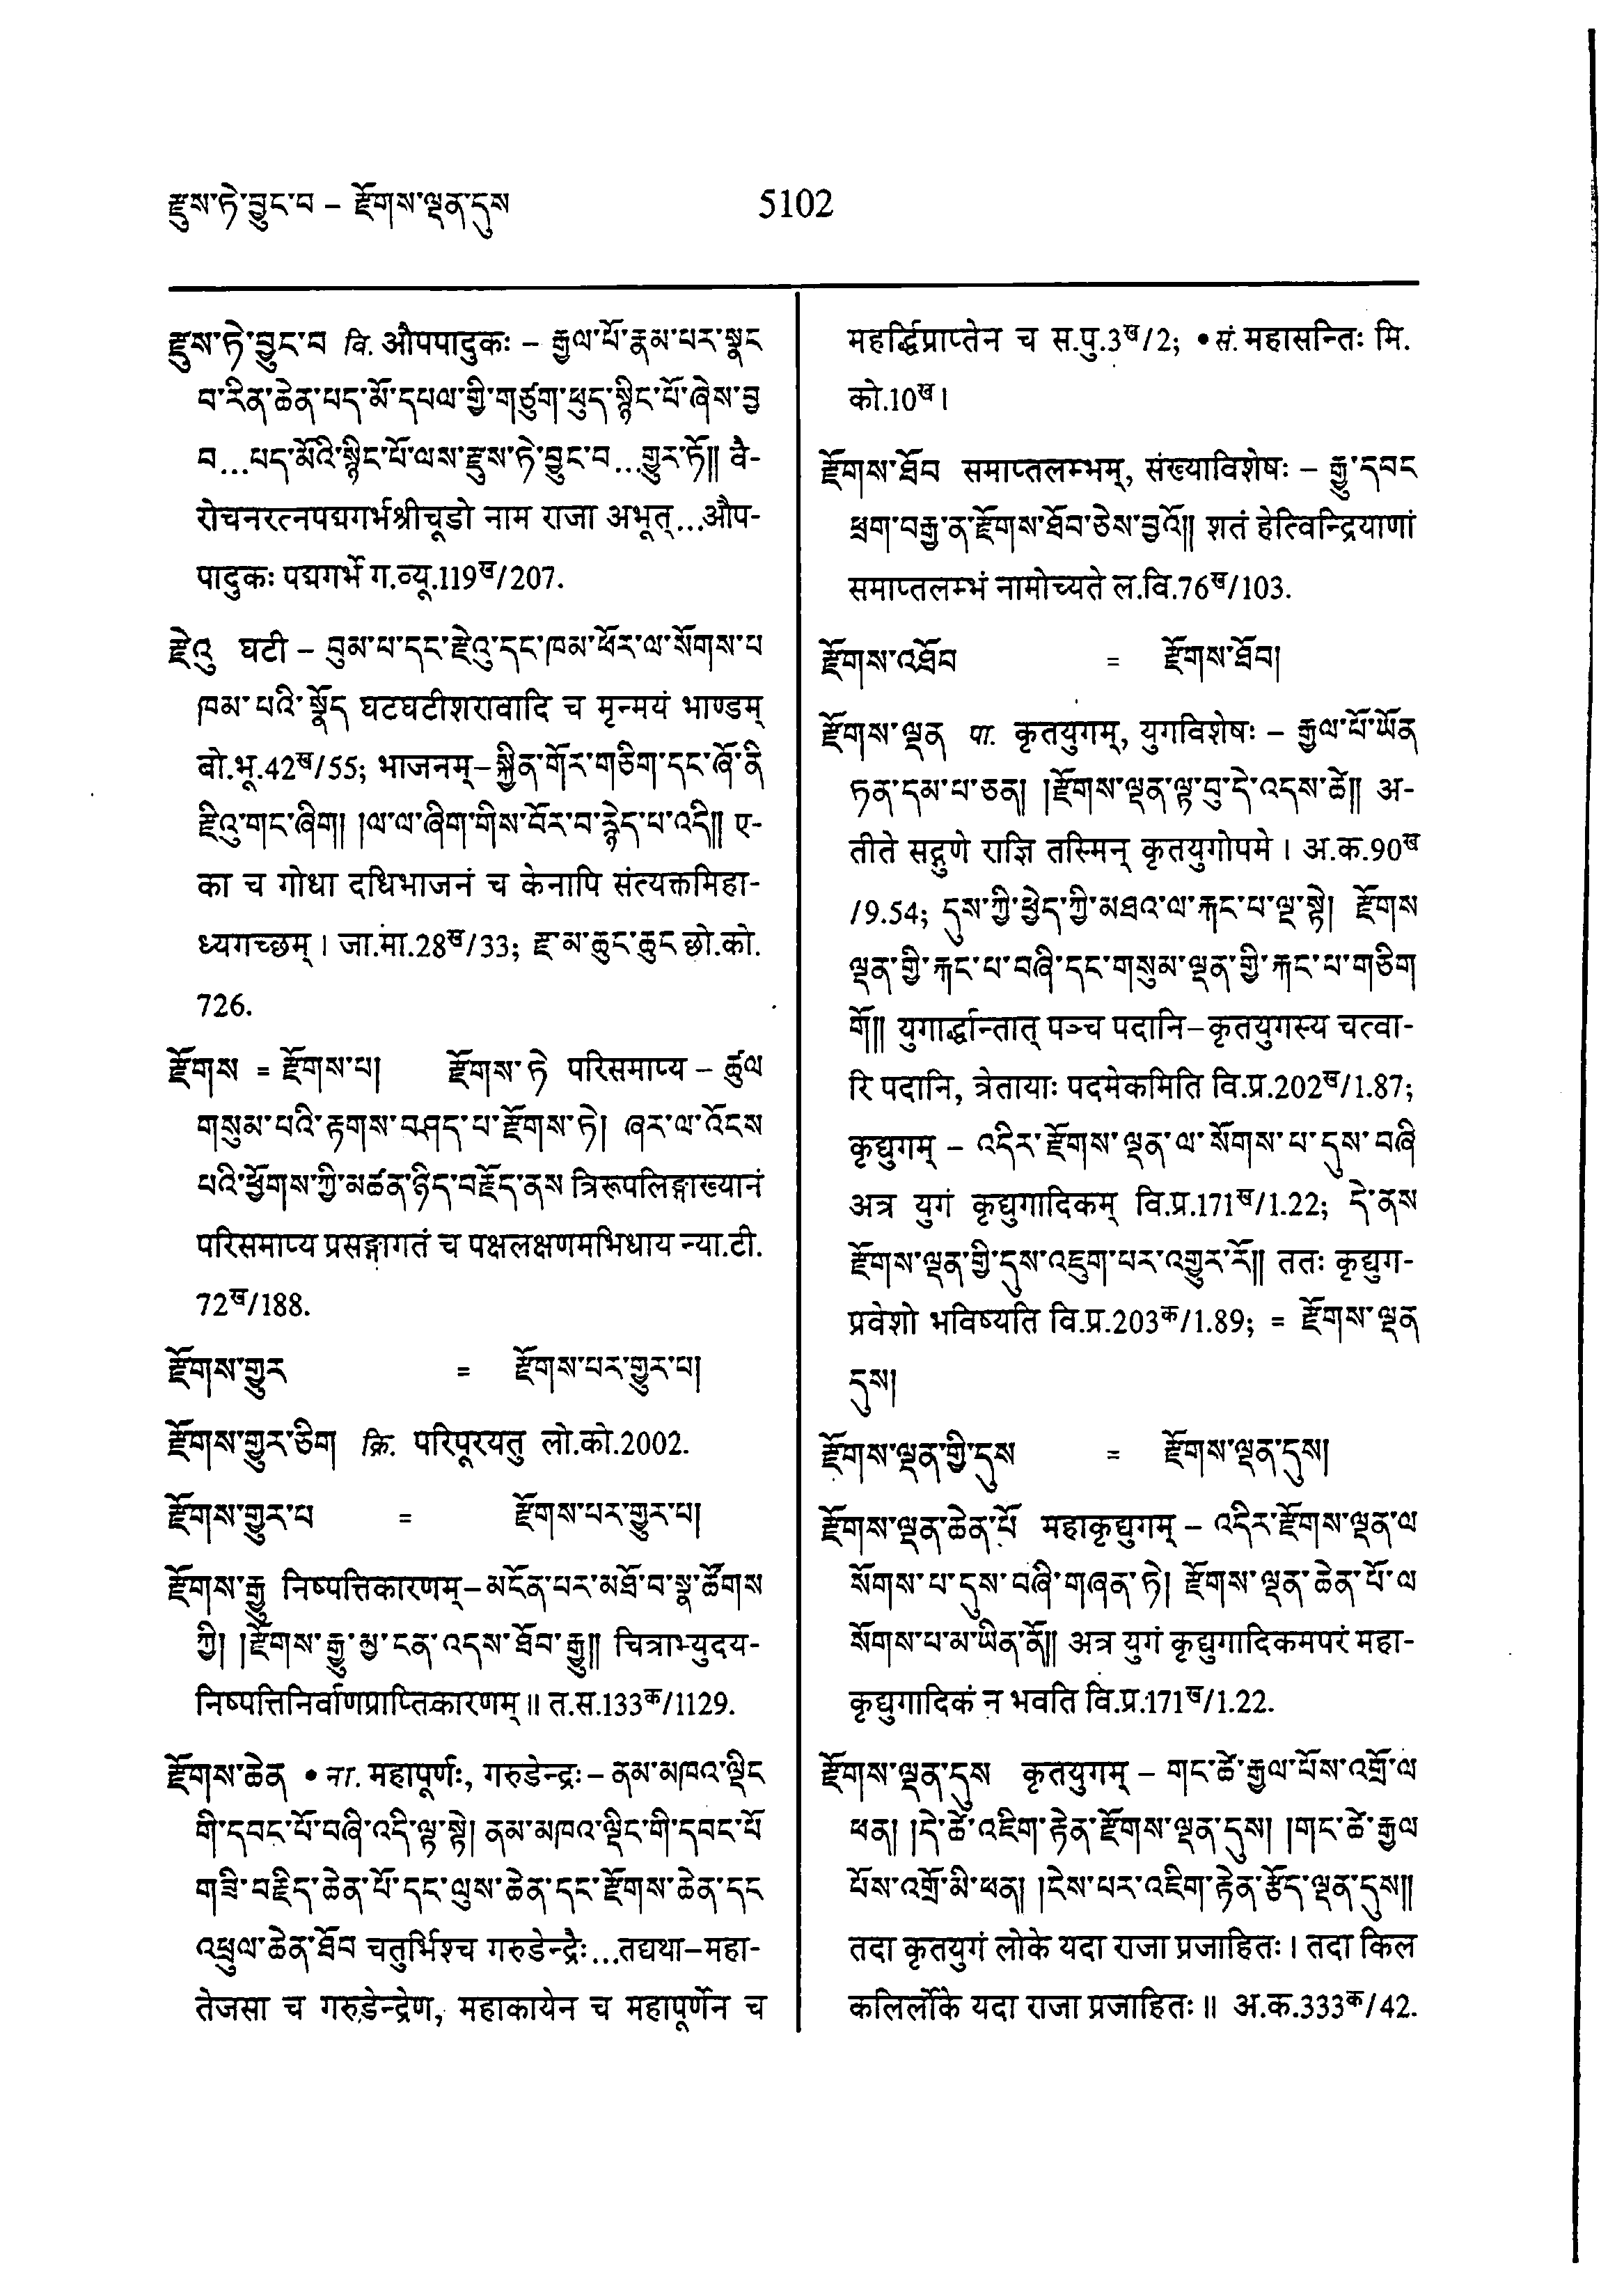 རྫུས་ཏེ་བྱུང་བ – རྫོགས་ལྡན་དུས 5102
རྫུས་ཏེ་བྱུང་བ वि. औपपादुकः – རྒྱལ་པོ་རྣམ་པར་སྣང
བ་རིན་ཆེན་པད་མོ་དཔལ་གྱི་གཙུག་ཕུད་སྙིང་པོ་ཞེས་བྱ
བ...པད་མོའི་སྙིང་པོ་ལས་རྫུས་ཏེ་བྱུང་བ...གྱུར་ཏོ༎ वै-
रोचनरत्नपद्मगर्भश्रीचूडो नाम राजा अभूत्...औप-
पादुकः पद्मगर्भे ग.व्यू.119ख/207.
རྫེའུ घटी – བུམ་པ་དང་རྫེའུ་དང་ཁམ་ཕོར་ལ་སོགས་པ
ཁམ་པའི་སྣོད घटघटीशरावादि च मृन्मयं भाण्डम्
बो.भू.42ख/55; भाजनम् – སྐྱིན་གོར་གཅིག་དང་ཞོ་ནི
རྫེའུ་གང་ཞིག། །ལ་ལ་ཞིག་གིས་བོར་བ་རྙེད་པ་འདི༎ ए-
का च गोधा दधिभाजनं च केनापि संत्यक्तमिहा-
ध्यगच्छम् । जा.मा.28ख/33; རྫ་མ་ཆུང་ཆུང छो.को.
726.
རྫོགས = རྫོགས་པ། རྫོགས་ཏེ परिसमाप्य – ཚུལ
གསུམ་པའི་རྟགས་བཤད་པ་རྫོགས་ཏེ། ཞར་ལ་འོངས
པའི་ཕྱོགས་ཀྱི་མཚན་ཉིད་བརྗོད་ནས त्रिरूपलिङ्गाख्यानं
परिसमाप्य प्रसङ्गागतं च पक्षलक्षणमभिधाय न्या.टी.
72ख/188.
རྫོགས་གྱུར = རྫོགས་པར་གྱུར་པ།
རྫོགས་གྱུར་ཅིག क्रि. परिपूरयतु लो.को.2002.
རྫོགས་གྱུར་པ = རྫོགས་པར་གྱུར་པ།
རྫོགས་རྒྱུ निष्पत्तिकारणम् – མངོན་པར་མཐོ་བ་སྣ་ཚོགས
ཀྱི། །རྫོགས་རྒྱུ་མྱ་ངན་འདས་ཐོབ་རྒྱུ༎ चित्राभ्युदय-
निष्पत्तिनिर्वाणप्राप्तिकारणम् ॥ त.स.133क/1129.
རྫོགས་ཆེན • ना. महापूर्णः, गरुडेन्द्रः – ནམ་མཁའ་ལྡིང
གི་དབང་པོ་བཞི་འདི་ལྟ་སྟེ། ནམ་མཁའ་ལྡིང་གི་དབང་པོ
གཟི་བརྗིད་ཆེན་པོ་དང་ལུས་ཆེན་དང་རྫོགས་ཆེན་དང
འཕྲུལ་ཆེན་ཐོབ चतुर्भिश्च गरुडेन्द्रैः...तद्यथा – महा-
तेजसा च गरुडेन्द्रेण, महाकायेन च महापूर्णेन च
महर्द्धिप्राप्तेन च स.पु.3ख/2; • सं. महासन्तिः मि.
को.10ख ।
རྫོགས་ཐོབ समाप्तलम्भम्, संख्याविशेषः – རྒྱུ་དབང
ཕྲག་བརྒྱ་ན་རྫོགས་ཐོབ་ཅེས་བྱའོ༎ शतं हेत्विन्द्रियाणां
समाप्तलम्भं नामोच्यते ल.वि.76ख/103.
རྫོགས་འཐོབ = རྫོགས་ཐོབ།
རྫོགས་ལྡན पा. कृतयुगम्, युगविशेषः – རྒྱལ་པོ་ཡོན
ཏན་དམ་པ་ཅན། །རྫོགས་ལྡན་ལྟ་བུ་དེ་འདས་ཚེ༎ अ-
तीते सद्गुणे राज्ञि तस्मिन् कृतयुगोपमे । अ.क.90ख
/9.54; དུས་ཀྱི་ཕྱེད་ཀྱི་མཐའ་ལ་རྐང་པ་ལྔ་སྟེ། རྫོགས
ལྡན་གྱི་རྐང་པ་བཞི་དང་གསུམ་ལྡན་གྱི་རྐང་པ་གཅིག
གོ༎ युगार्द्धान्तात् पञ्च पदानि – कृतयुगस्य चत्वा-
रि पदानि, त्रेतायाः पदमेकमिति वि.प्र.202ख/1.87;
कृद्युगम् – འདིར་རྫོགས་ལྡན་ལ་སོགས་པ་དུས་བཞི
अत्र युगं कृद्युगादिकम् वि.प्र.171ख/1.22; དེ་ནས
རྫོགས་ལྡན་གྱི་དུས་འཇུག་པར་འགྱུར་རོ༎ ततः कृद्युग-
प्रवेशो भविष्यति वि.प्र.203क/1.89; = རྫོགས་ལྡན
དུས།
རྫོགས་ལྡན་གྱི་དུས = རྫོགས་ལྡན་དུས།
རྫོགས་ལྡན་ཆེན་པོ महाकृद्युगम् – འདིར་རྫོགས་ལྡན་ལ
སོགས་པ་དུས་བཞི་གཞན་ཏེ། རྫོགས་ལྡན་ཆེན་པོ་ལ
སོགས་པ་མ་ཡིན་ནོ༎ अत्र युगं कृद्युगादिकमपरं महा-
कृद्युगादिकं न भवति वि.प्र.171ख/1.22.
རྫོགས་ལྡན་དུས कृतयुगम् – གང་ཚེ་རྒྱལ་པོས་འགྲོ་ལ
ཕན། །དེ་ཚེ་འཇིག་རྟེན་རྫོགས་ལྡན་དུས། །གང་ཚེ་རྒྱལ
པོས་འགྲོ་མི་ཕན། །ངེས་པར་འཇིག་རྟེན་རྩོད་ལྡན་དུས༎
तदा कृतयुगं लोके यदा राजा प्रजाहितः । तदा किल
कलिर्लोके यदा राजा प्रजाहितः ॥ अ.क.333क/42.